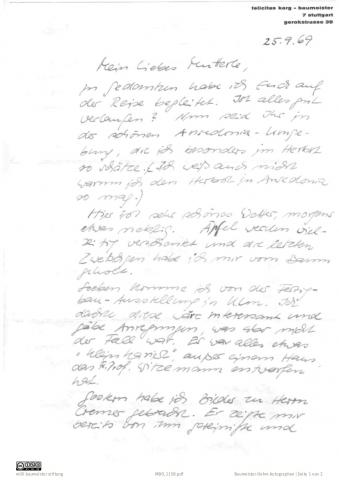 felicitas karg - baumeister
7 stuttgart
gerokstrasse 39
25.9.69
Mein liebes Mutterle,
In Gedanken habe ich Euch auf
der Reise begleitet. Ist alles gut
verlaufen? Nun seid Ihr in
der schönen Ansedonia-Umge-
bung, die ich besonders im Herbst
so schätze. (Ich weiß auch nicht
warum ich den Herbst in Ansedonia
so mag.)
Hier ist sehr schönes Wetter, morgens
etwas neblig. Äpfel werden viel-
und die letzten
Zwetschgen habe ich mir vom Baum
geholt.
Soeben komme ich von der Fertig-
bau-Ausstellung in Ulm. Ich
dachte diese wäre interessant und
gäbe Anregungen, was aber nicht
der Fall war. Es war alles etwas
"kleinkariert", außer einem Haus
das Prof. Witzemann entworfen
hat.
Gestern habe ich Bilder zu Herrn
Cremer gebracht. Er zeigte mir
bereits von ihm gereinigte und
willi baumeister stiftung
Baumeister Briefe Autographen | Seite 1 von 2